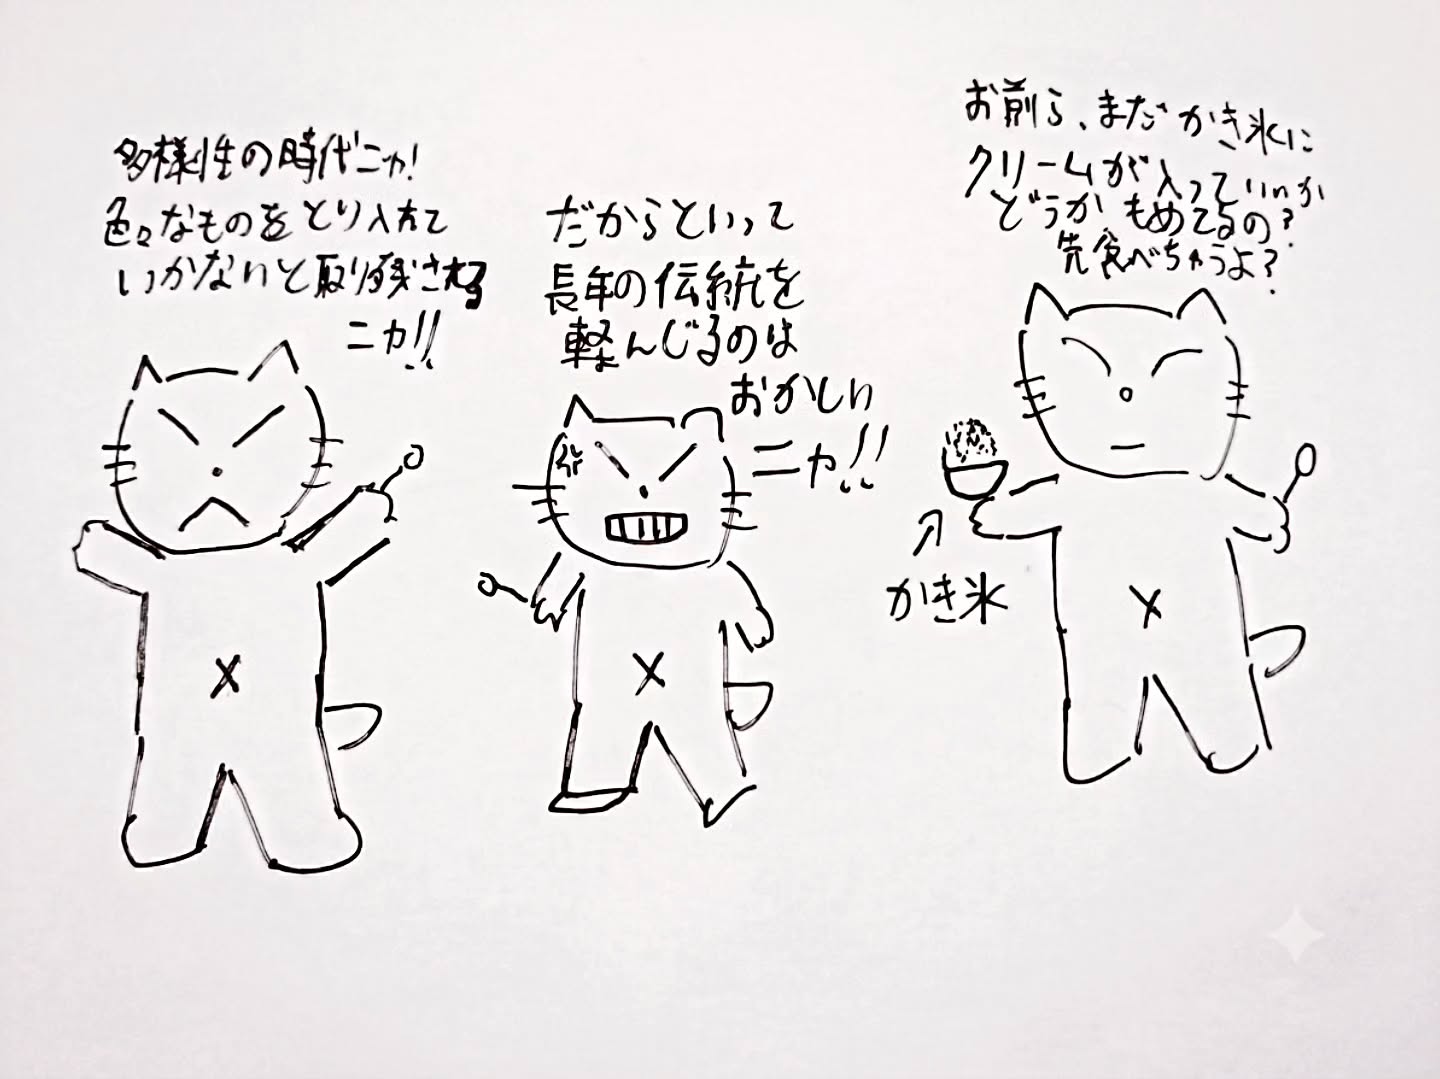 多様性の時代ニャ!
色々なものをとり入れて
いかないと取り残される
ニャ!!
だからといって
長年の伝統を
軽んじるのは
おかしい
ニャ!!
お前ら、まだかき氷に
クリームが入っていいか
どうかもめてるの?
先食べちゃうよ?
かき氷